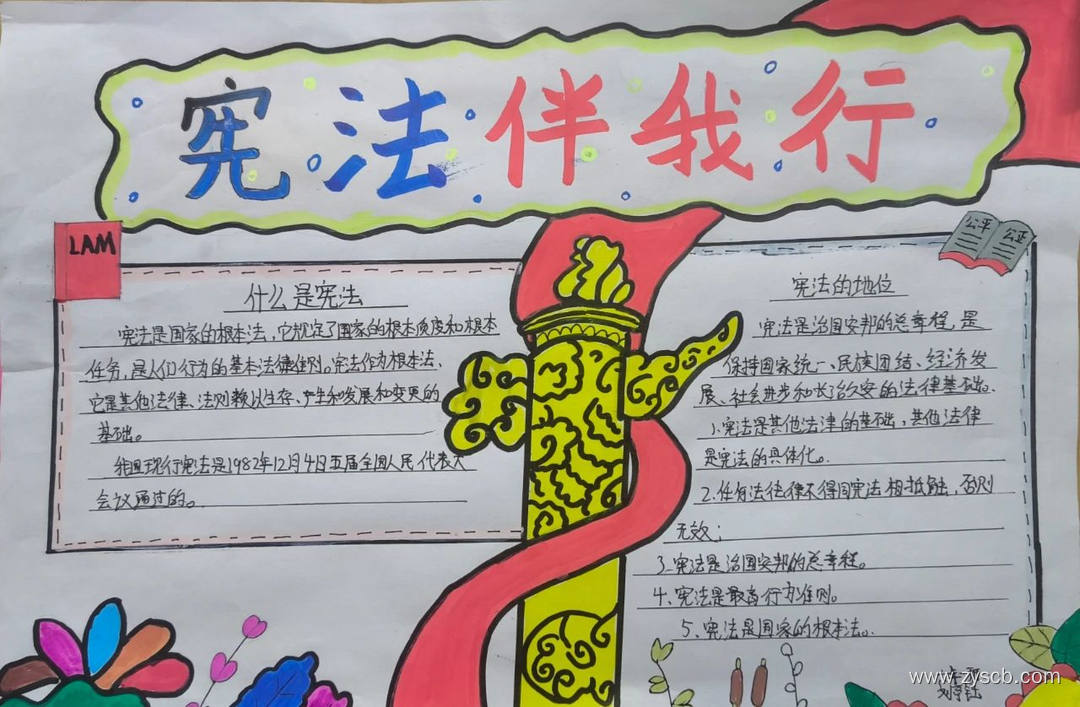 宪法伴我行
LAM
公平 公正
什么是宪法
宪法是国家的根本法,它规定了国家的根本制度和根本
任务,是人们行为的基本法律准则。宪法作为根本法、
它是其他法律、法则赖以生存、产生和发展和变更的
基础。
我国现行宪法是1982年12月4日五届全国人民代表大
会议通过的。
宪法的地位
宪法是治国安邦的总章程,是
保持国家统一、民族团结、经济发
展、社会进步和长治久安的法律基础。
1.宪法是其他法律的基础,其他法律
是宪法的具体化。
2.任何法律不得同宪法相抵触,否则
无效;
3.宪法是治国安邦的总章程。
4、宪法是最高行为准则。
5、宪法是国家的根本法。
www.zyscb.com